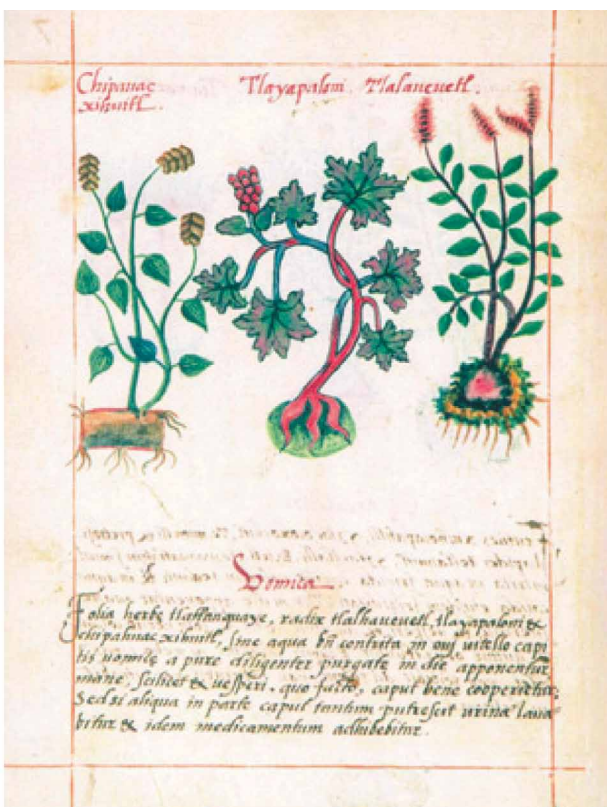 Chipauac
xihuitl.
Tlayapaloni
Tlalaueuetl.
Vomica
Folia herbę tlatlanquaye, radix tlalhaueuetl, tlayapaloni &
chipahuac xihuitl, sine aqua bñ contrita in oui uitello capi
tis uomicę a pure diligenter purgatę in die apponentur
mane scilicet & uesperi. quo facto, caput bene cooperietur.
Sed si aliqua in parte caput tantum putrescit urina laua
bitur & idem medicamentum adhibebitur.